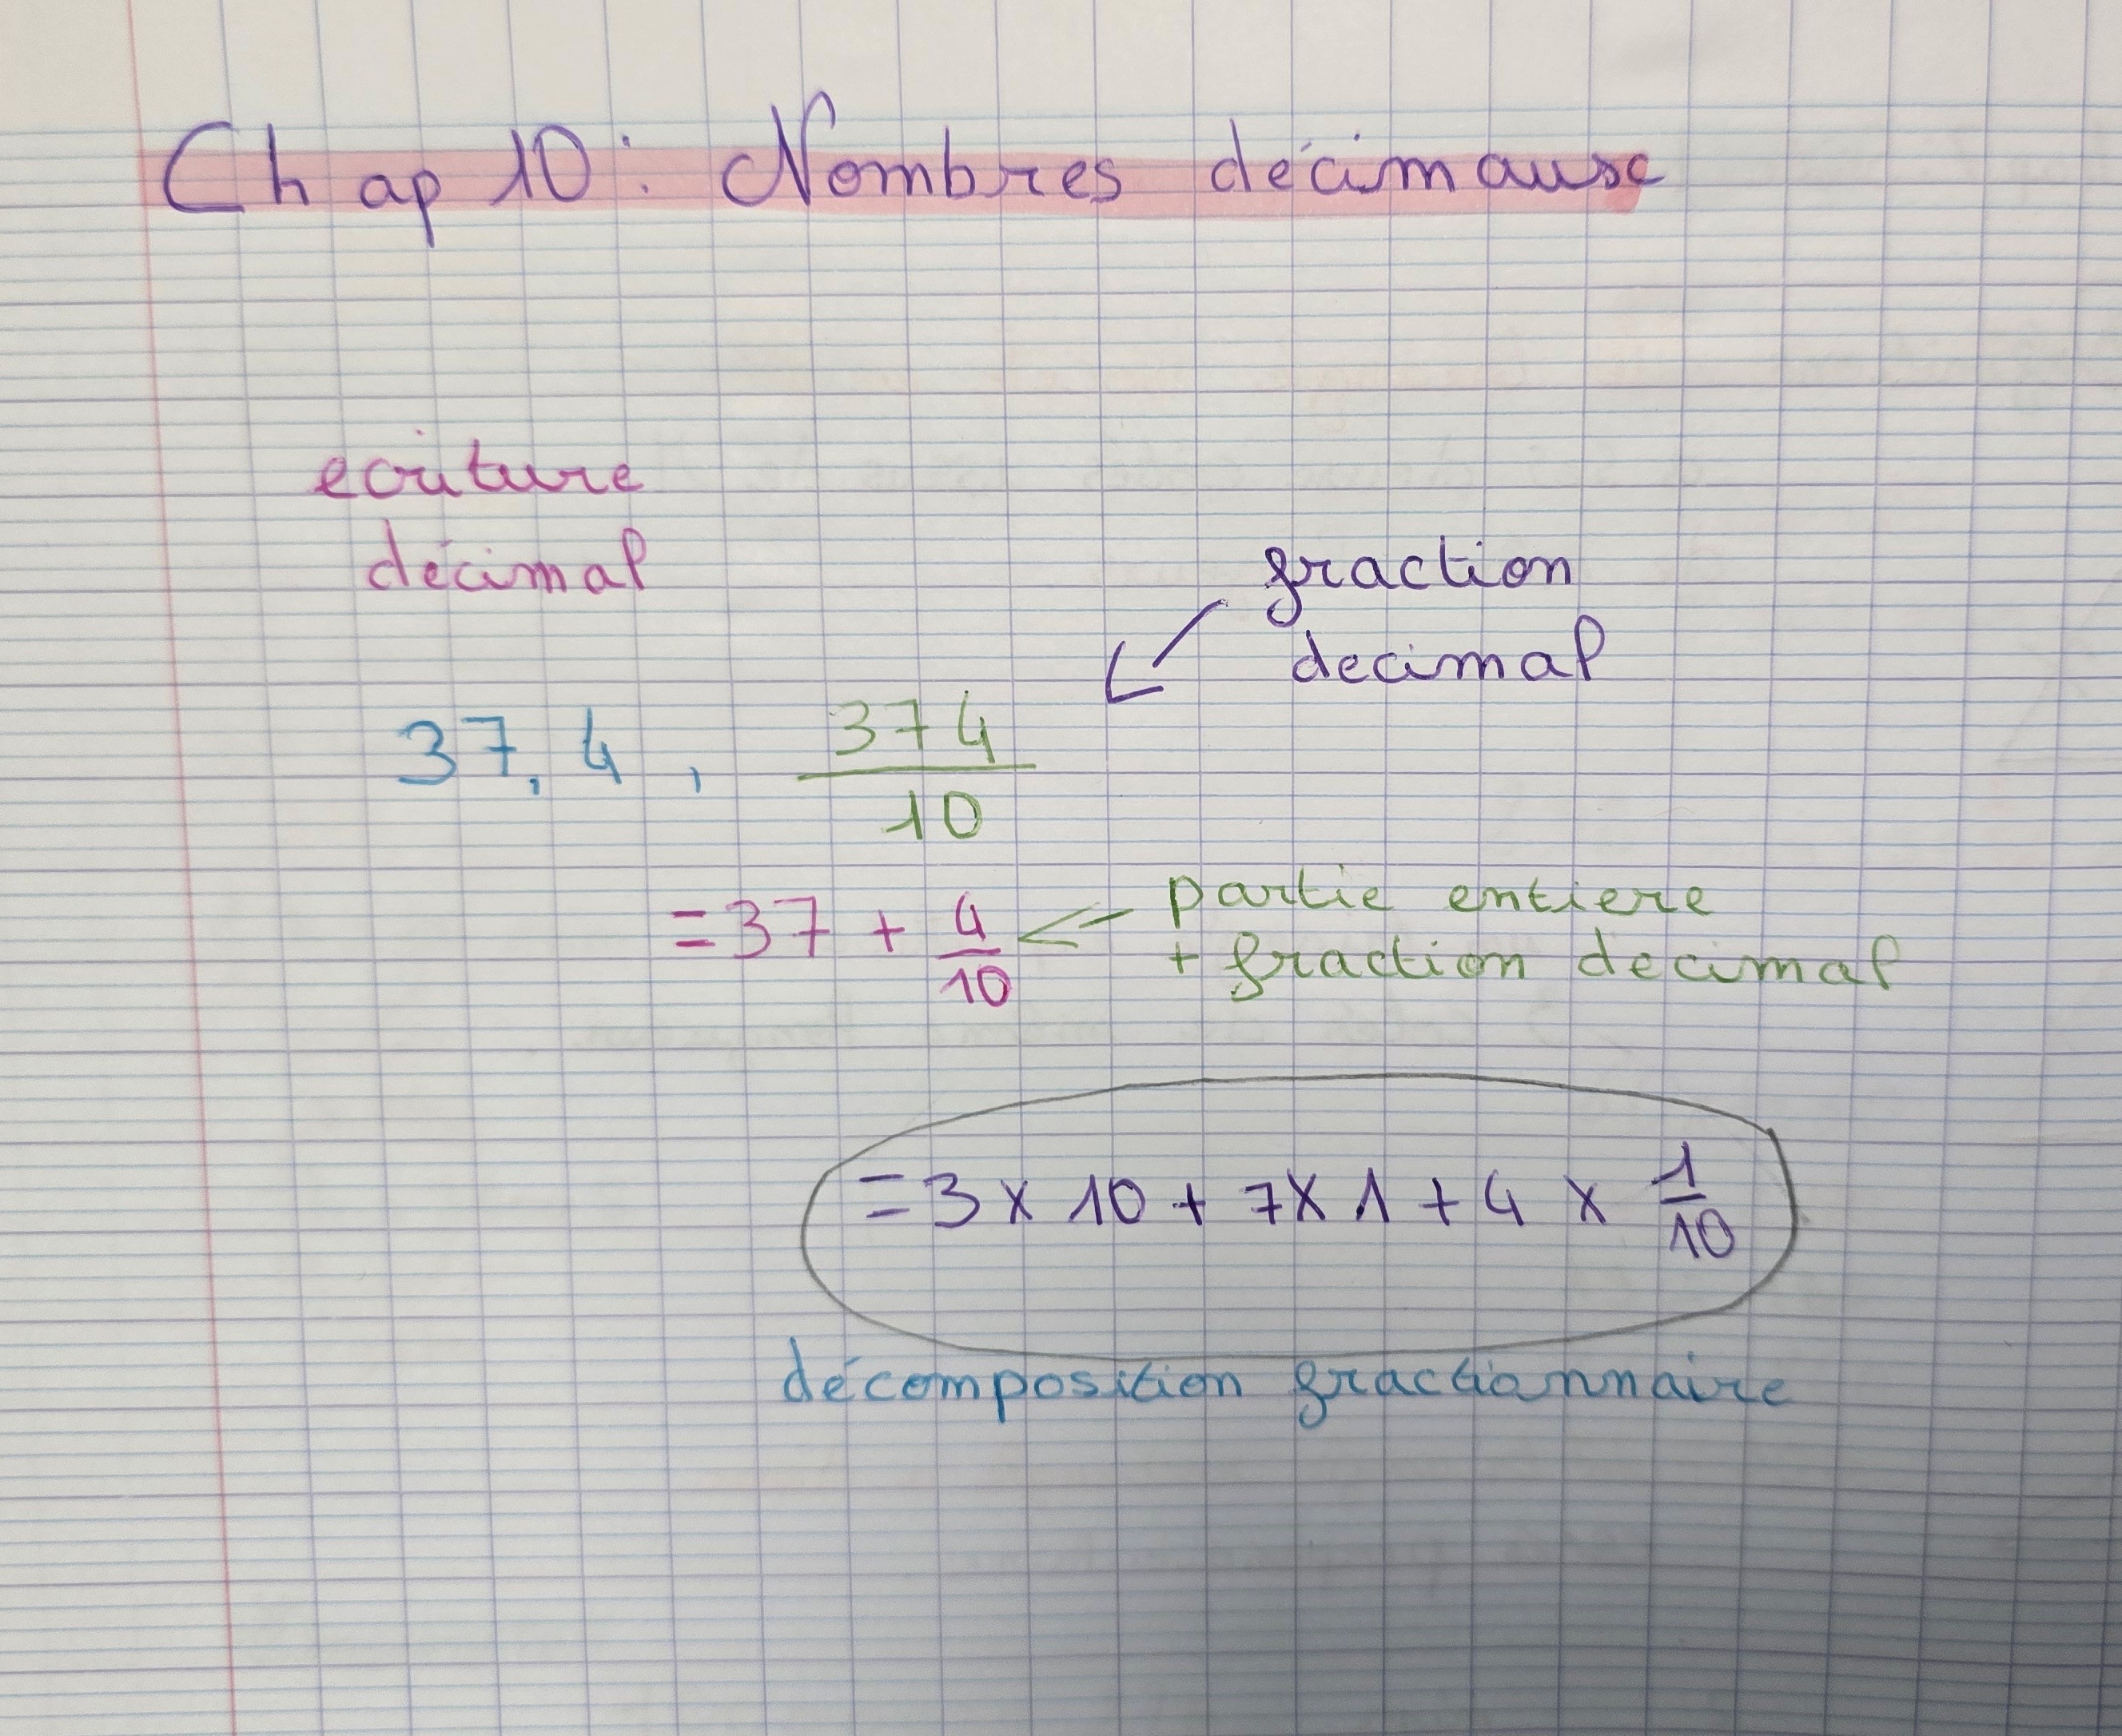 Chap 10 : Nombres décimaux
ecriture
décimal
fraction
decimal
37,4 , 374/10
= 37 + 4/10 <= partie entiere
+ fraction decimal
= 3 x 10 + 7 x 1 + 4 x 1/10
décomposition fractionnaire